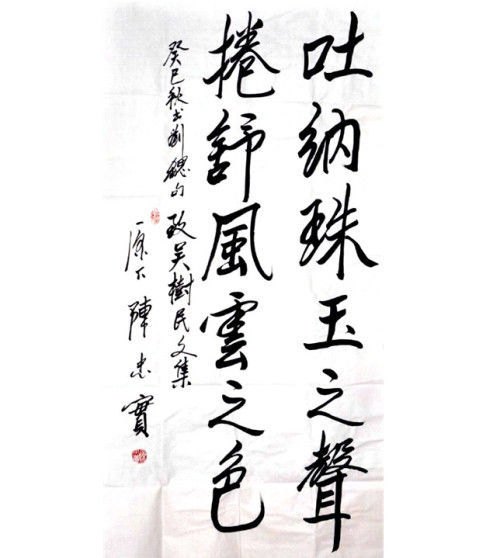 吐納珠玉之聲
捲舒風雲之色
癸巳秋书刘勰句 致吴樹民文集
原下 陳忠實